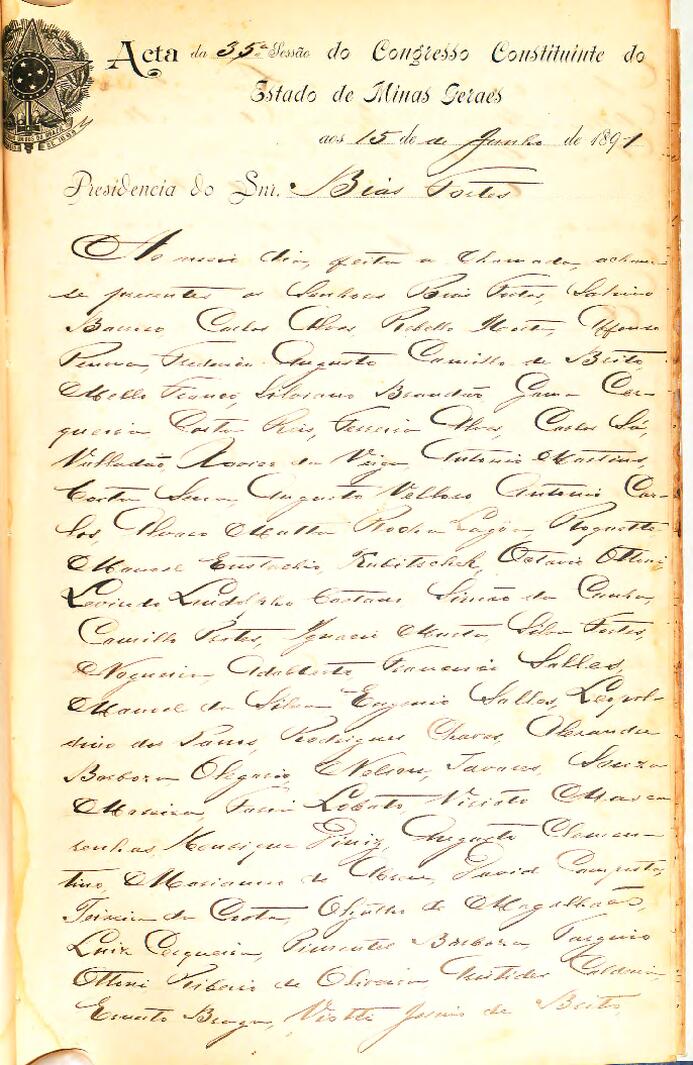 Acta da 35ª Sessão do Congresso Constituinte do
Estado de Minas Geraes
aos 15 de de Junho de 1891
Presidencia do Snr. Bias Fortes
Ao meio dia, feita a chamada, acham-
se presentes os Senhores Bias Fortes, Sabino
Barroso, Carlos Alves, Rebello Horta, Affonso
Penna, Frederico Augusto Camillo de Brito,
Mello Franco, Silviano Brandão Gama Cer-
queira Costa Reis, Ferreira Alves, Carlos Sá,
Valladão Xavier da Veiga, Antonio Martins,
Costa Sena, Augusto Velloso Antonio Car-
los, Alvaro Matta Rocha Lagôa, Roquette
Manoel Eustachio, Kubitschek, Octavio Ottoni
Levindo Lindolpho Caetano Simão da Cunha,
Camillo Prates, Ignacio Murta, Silva Fortes,
Nogueira, Adalberto, Francisco Salles,
Manoel da Silva Eugenio Salles, Leopol-
dino dos Passos, Rodrigues Chaves, Alexandre
Barbosa Olegario, Nelson, Tavares, Souza
Moreira, Faria Lobato, Viriato Masca
renhas Henrique Diniz, Augusto Clemen-
tino, Marianno de Abreu, David Campista,
Teixeira da Costa, Olyntho de Magalhães,
Luiz Cerqueira, Pimentel Barbosa, Targino
Ottoni Ribeiro de Oliveira, Aristides Caldeira,
Ernesto Braga, Viotti Josino de Brito,